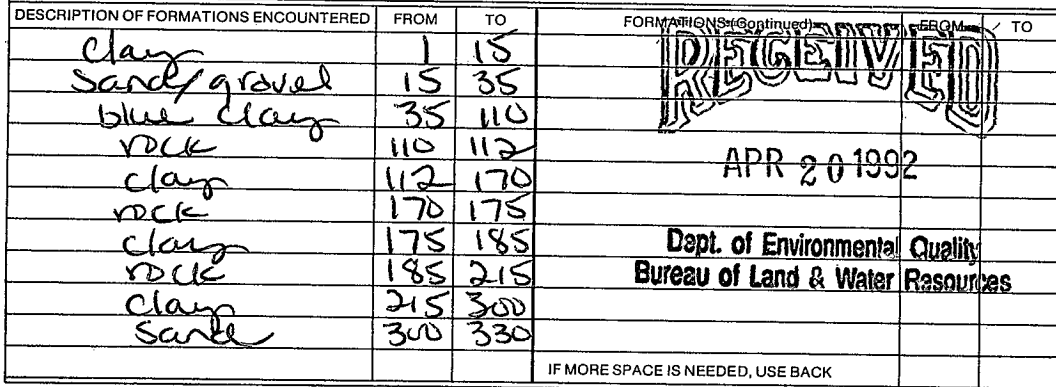 DESCRIPTION OF FORMATIONS ENCOUNTERED FROM TO
clay 1 15
Sand/gravel 15 35
blue clay 35 110
rock 110 112
clay 112 170
rock 170 175
clay 175 185
rock 185 215
clay 215 300
Sand 300 330
FORMATIONS (Continued) FROM TO
RECEIVED
APR 20 1992
Dept. of Environmental Quality
Bureau of Land & Water Resources
IF MORE SPACE IS NEEDED, USE BACK